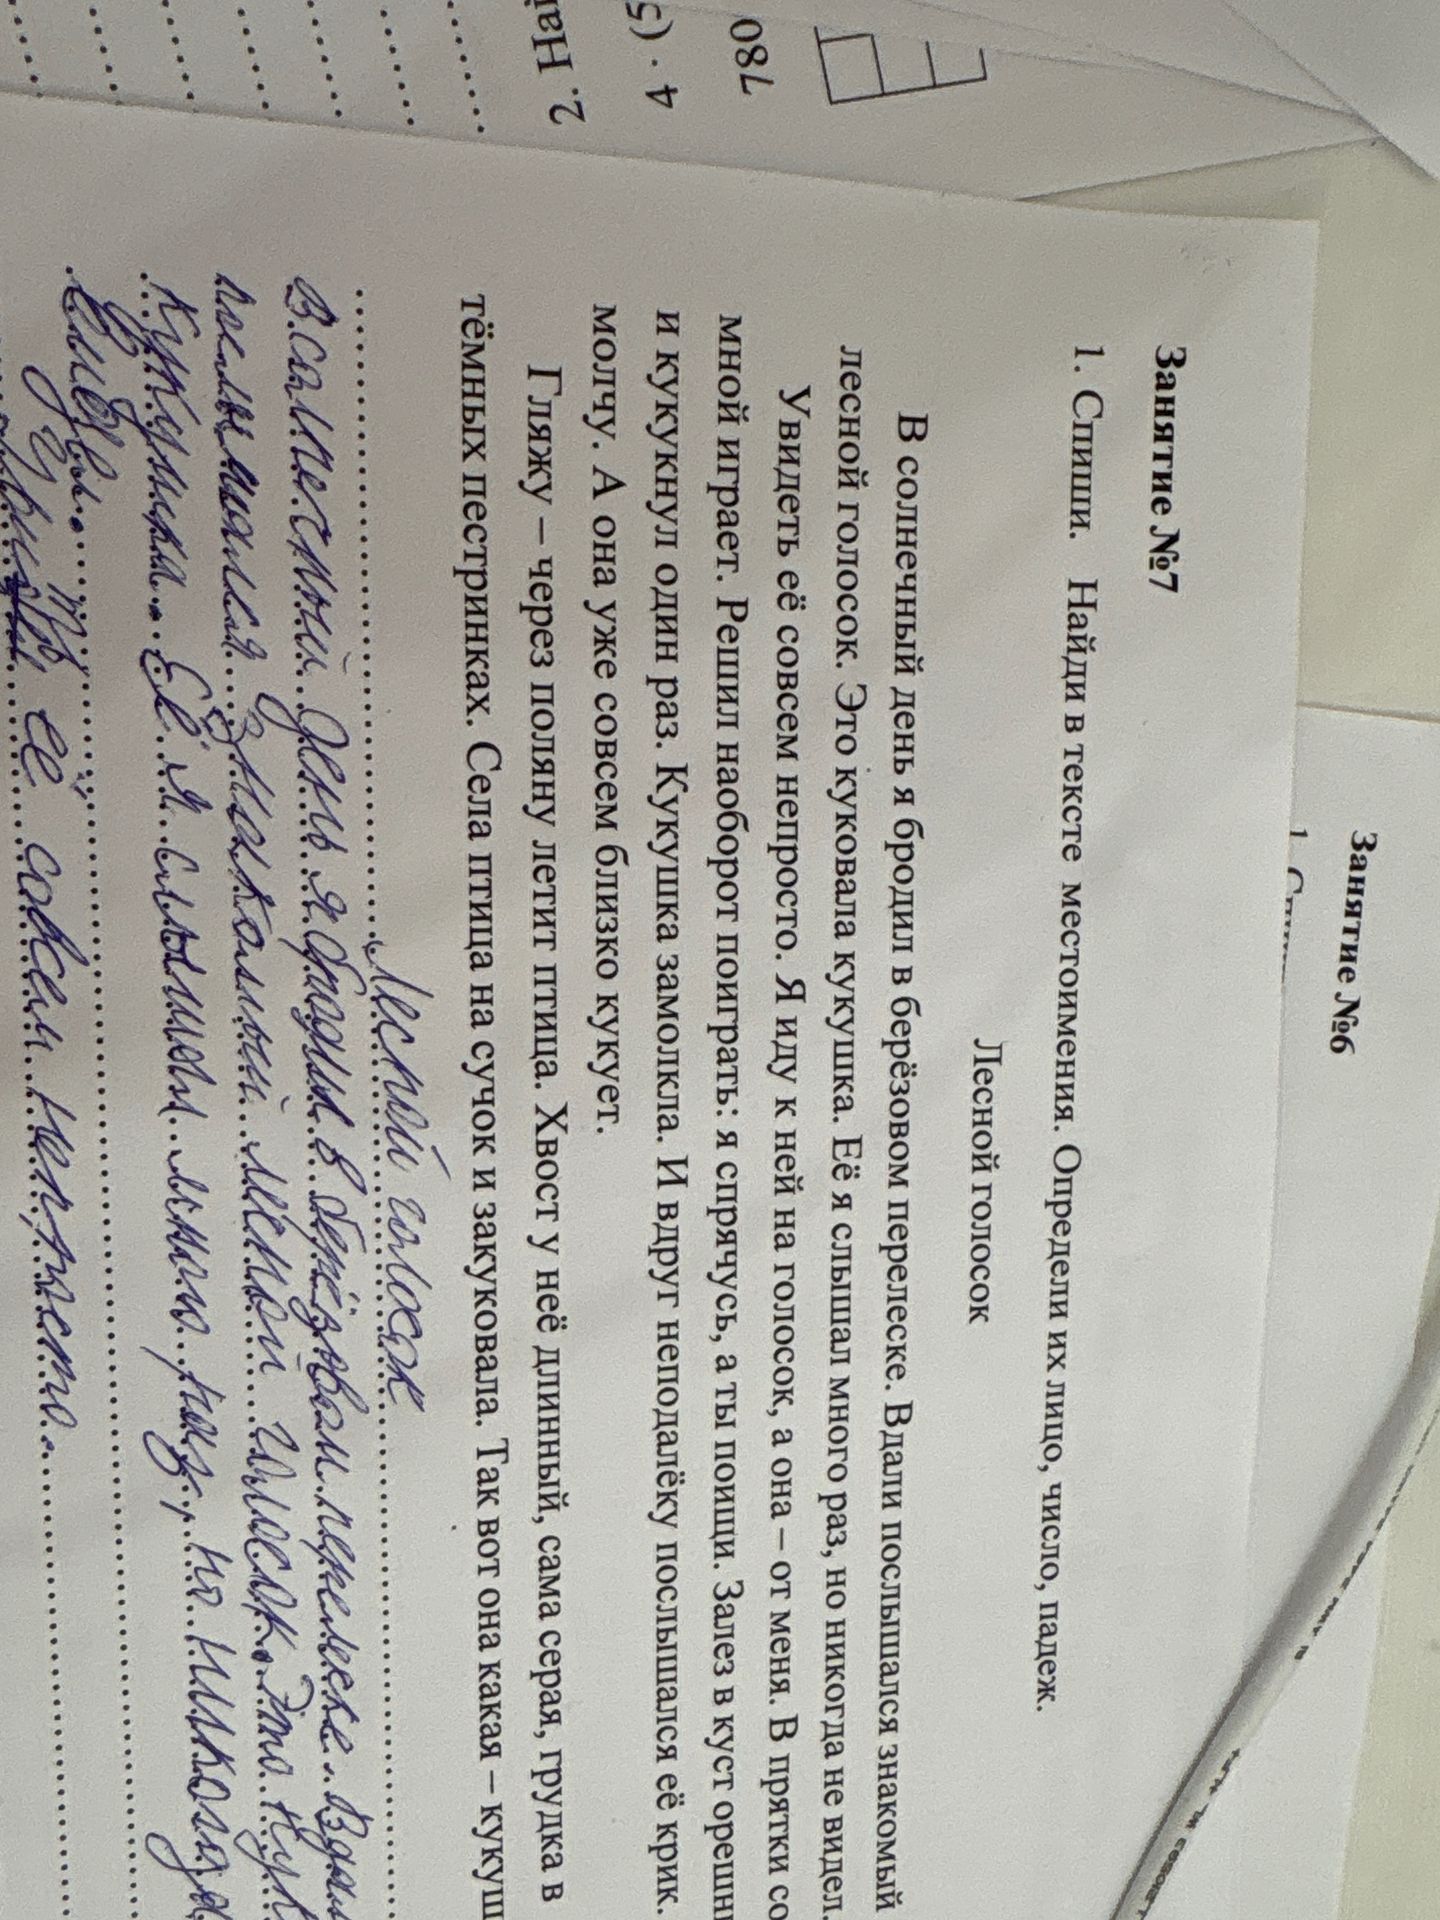 Занятие №6
Занятие №7
1. Спиши. Найди в тексте местоимения. Определи их лицо, число, падеж.
Лесной голосок
В солнечный день я бродил в берёзовом перелеске. Вдали послышался знакомый
лесной голосок. Это куковала кукушка. Её я слышал много раз, но никогда не видел.
Увидеть её совсем непросто. Я иду к ней на голосок, а она – от меня. В прятки со
мной играет. Решил наоборот поиграть: я спрячусь, а ты поищи. Залез в куст
и кукукнул один раз. Кукушка замолкла. И вдруг неподалёку послышался её крик.
молчу. А она уже совсем близко кукует.
Гляжу – через поляну летит птица. Хвост у неё длинный, сама серая, грудка в
тёмных пестринках. Села птица на сучок и закуковала. Так вот она какая –
Лесной голосок
В солнечный день я бродил в берёзовом перелеске. Вдали
послышался знакомый лесной голосок. Это
кукушка. Её я слышал много раз, но никогда
её совсем непросто.
2.
780
4